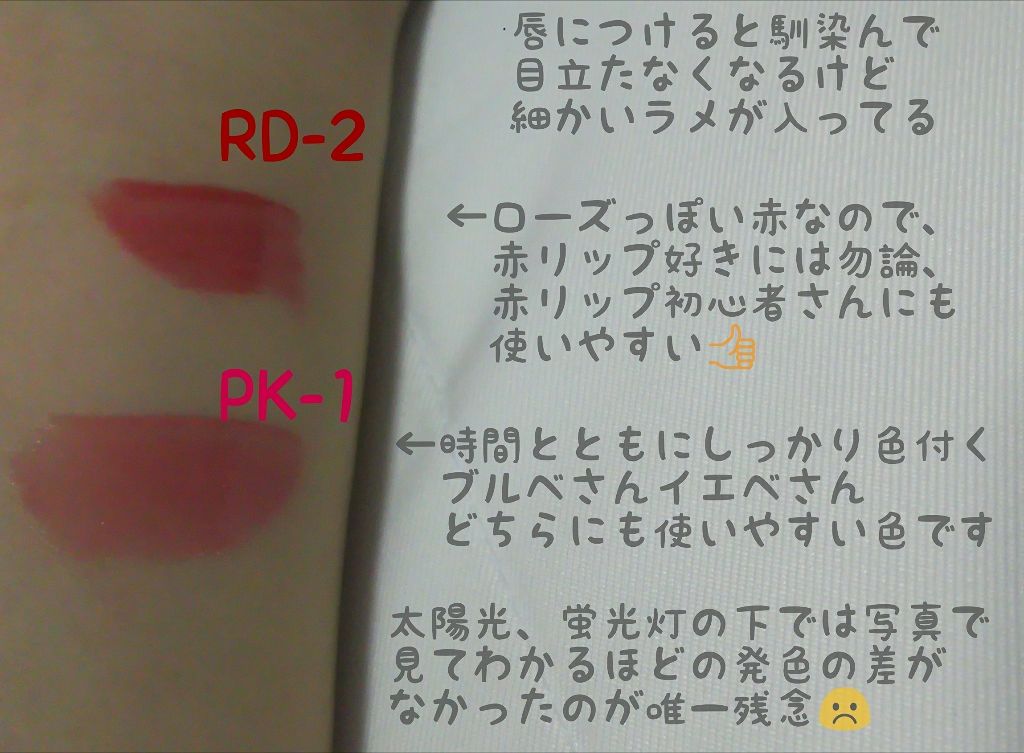 ·唇につけると馴染んで
目立たなくなるけど
細かいラメが入ってる
RD-2
←ローズっぽい赤なので、
赤リップ好きには勿論、
赤リップ初心者さんにも
使いやすい👍
PK-1
←時間とともにしっかり色付く
ブルベさんイエベさん
どちらにも使いやすい色です
太陽光、蛍光灯の下では写真で
見てわかるほどの発色の差が
なかったのが唯一残念☹